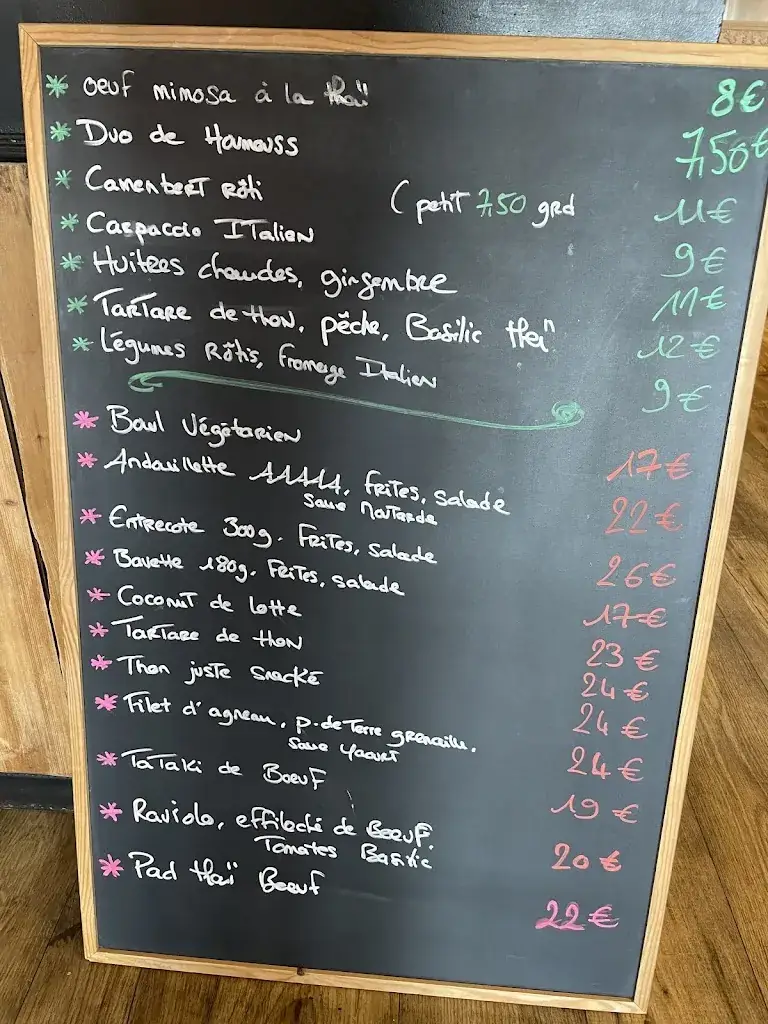 * oeuf mimosa à la thaï 8€
* Duo de Houmouss 7,50€
* Camembert Rôti (petit 7,50 grd 11€
* Carpaccio Italien 9€
* Huitres chaudes, gingembre 11€
* Tartare de thon, pêche, Basilic thaï 12€
* Légumes Rôtis, fromage Italien 9€
* Bowl Végétarien 17€
* Andouillette AAAAA, frites, salade 22€
sauce Moutarde
* Entrecote 300g. Frites, salade 26€
* Bavette 180g, Frites, salade 17€
* Coconut de lotte 23€
* Tartare de thon 24€
* Thon juste snacké 24€
* Filet d'agneau, p. de Terre grenaille. 24€
sauce Yaourt
* TaTaki de Boeuf 19€
* Raviole, effiloché de Boeuf. 20€
Tomates Basilic
* Pad thaï Boeuf 22€